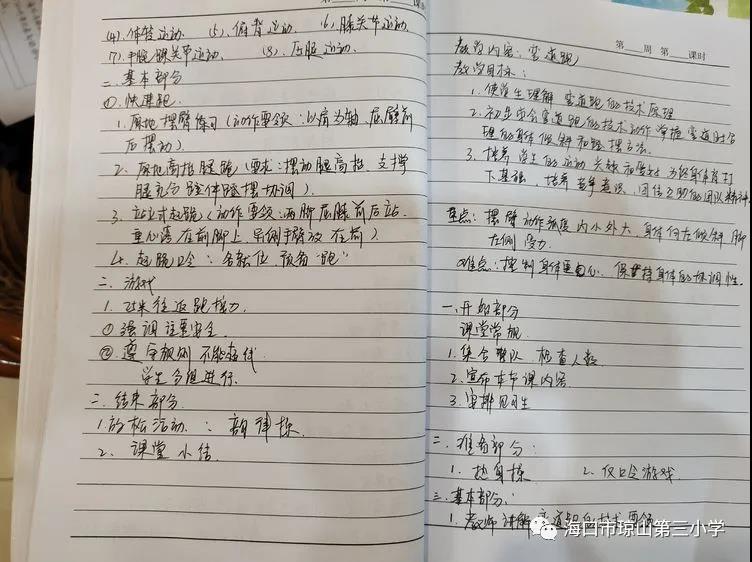 (4). 体转运动. (5). 俯背运动. (6). 膝关节运动.
(7). 手腕踝关节运动. (8). 压腿运动.
二. 基本部分
①. 快速跑.
1. 原地摆臂练习(动作要领:以肩为轴 屈臂前
后摆动).
2. 原地高抬腿跑(要求:摆动腿高抬, 支撑
腿充分 蹬伸 蹬摆协调).
3. 站立式起跑(动作要领:两脚屈膝前后站
重心落在前脚上, 异侧手臂放在前)
4. 起跑口令: 各就位, 预备 "跑"
三. 游戏
1. 25米往返跑接力.
① 强调注意安全
② 遵守规则 不能抢代
学生分组进行.
三. 结束部分
1. 放松活动: 韵律操.
2. 课堂小结.
第 周 第 课时
教学内容: 弯道跑
教学目标:
1. 使学生理解弯道跑的技术原理
2. 初步学会弯道跑的技术动作 掌握弯道时合
理的身体倾斜和摆臂方法.
3. 培养学生的运动兴趣和 为终身体育打
下基础, 培养竞争意识, 团结互助的团队精神.
重点: 摆臂动作幅度内小外大, 身体向左倾斜 脚
左侧受力.
难点: 控制身体重心, 保持身体的协调性.
一. 开始部分
课堂常规
1. 集合整队 检查人数
2. 宣布本节课内容
3. 安排见习生
二. 准备部分:
1. 热身操 2. 反口令游戏
三. 基本部分:
1. 教师讲解弯道跑的技术要领
海口市琼山第三小学